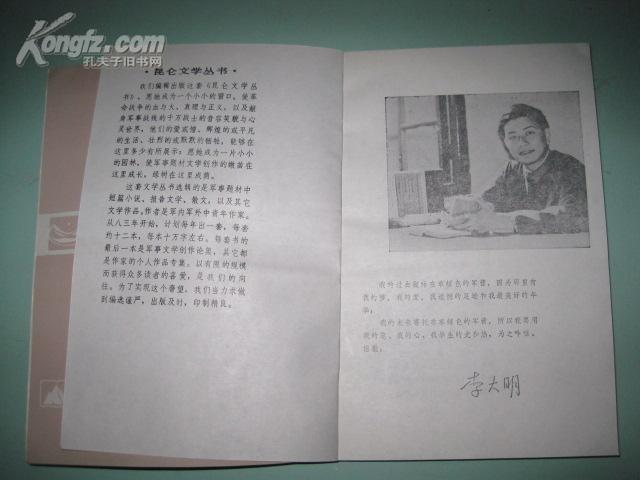 Kongfz.com
孔夫子旧书网
·昆仑文学丛书·
我们编辑出版这套《昆仑文学丛
书》，愿她成为一个小小的窗口，使革
命战争的血与火、真理与正义，以及献
身军事战线的千万战士的音容笑貌与心
灵世界，他们的爱或憎、辉煌的或平凡
的生活、壮烈的或默默的牺牲，能够在
这里多少有所展示；愿她成为一片小小
的园林，使军事题材文学创作的嫩苗在
这里成长，绿树在这里成荫。
这套文学丛书选辑的是军事题材中
短篇小说、报告文学、散文，以及其它
文学作品。作者是军内军外中青年作家。
从八三年开始，计划每年出一套，每套
约十二本，每本十万字左右。每套书的
最后一本是军事文学创作论集，其它都
是作家的个人作品专集。以有限的规模
而获得众多读者的喜爱，是我们的向
往。为了实现这个奢望，我们当力求做
到编选谨严，出版及时，印制精良。
我的过去凝结在草绿色的军营，因为那里有
我的梦，我的爱，我追随的足迹和我最美好的年
华；
我的未来寄托在草绿色的军营，所以我要用
我的笔、我的心，我毕生的光和热，为之呼唱、
讴歌。
李大明